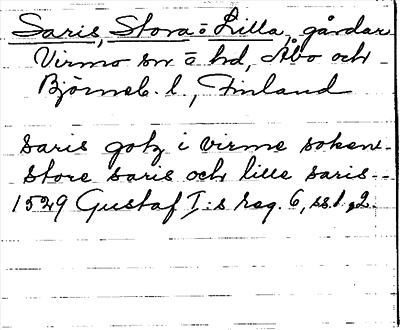 Saris, Stora o Lilla, gårdar
Virmo sn o hd, Åbo och
Björneb. l., Finland
saris gotz i virme soken
store saris och lille saris
1529 Gustaf I:s reg. 6, ss. 1, 2.